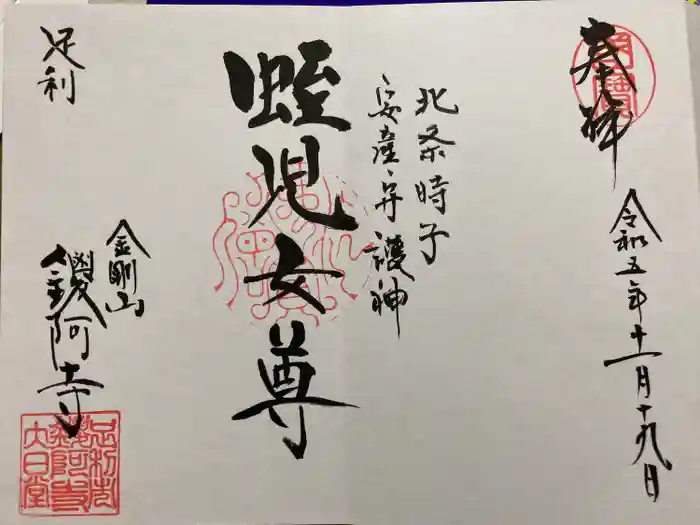 奉拝
令和五年十一月十九日
北条時子
安産守護神
蛭児女尊
足利
金剛山
鑁阿寺
足利市
鑁阿寺
大日堂